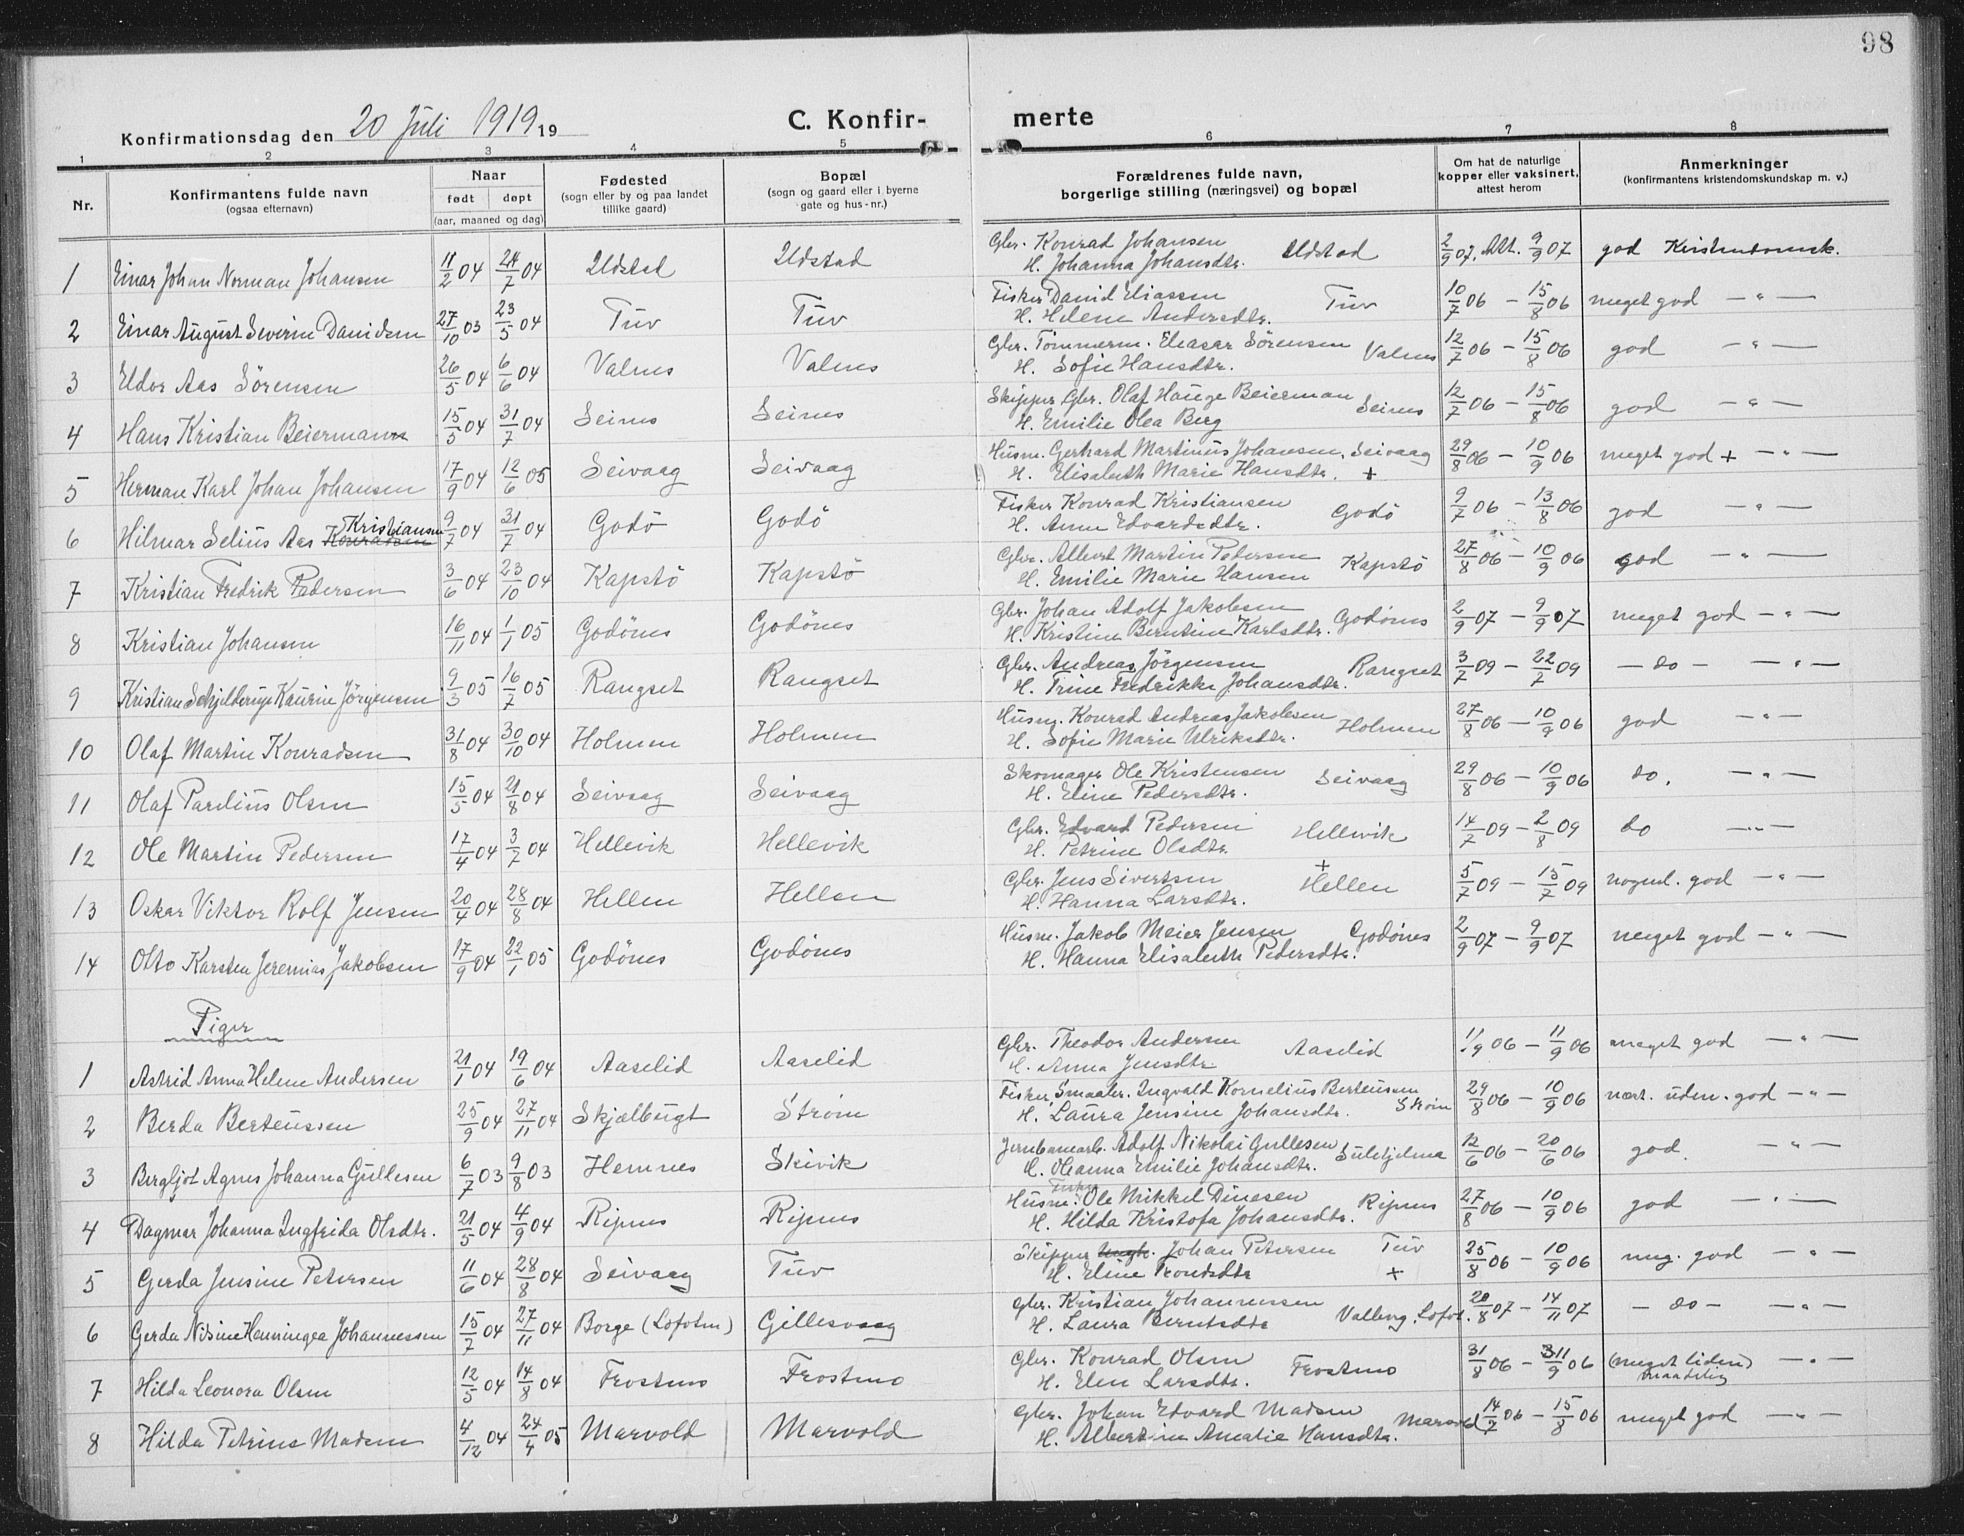 98
Konfirmationsdag den 20 Juli 1919 19
C. Konfir- merte
1 2 3 4 5 6 7 8
Nr.
Konfirmantens fulde navn
(ogsaa efternavn)
Naar
født døpt
(aar, maaned og dag)
Fødested
(sogn eller by og paa landet
tillike gaard)
Bopæl
(sogn og gaard eller i byerne
gate og hus-nr.)
Forældrenes fulde navn,
borgerlige stilling (næringsvei) og bopæl
Om hat de naturlige
kopper eller vaksinert,
attest herom
Anmerkninger
(konfirmantens kristendomskundskap m. v.)
1 Einar Johan Norman Johansen 11/2 04 24/7 04 Ildstad Ildstad Gbr. Konrad Johansen Ildstad 2/9 07. Att. 9/9 07 god Kristendomsk.
H. Johanna Johansdtr.
2 Einar August Severin Danidsen 27/10 03 23/5 04 Tuv Tuv Fisker Daniel Eliassen Tuv 10/7 06 — 15/8 06 meget god — " —
H. Helene Andersdtr.
3 Eldor Aas Sørensen 26/5 04 6/6 04 Valnes Valnes Gbr. Tømmerm. Eleasar Sørensen Valnes 12/7 06 — 15/8 06 god — " —
H. Sofie Hansdtr.
4 Hans Kristian Beiermann 15/5 04 31/7 04 Seines Seines Skipper Gbr. Olaf Hauge Beierman Seines 12/7 06 — 15/8 06 god — " —
H. Emilie Olea Berg
5 Herman Karl Johan Johansen 17/9 04 12/6 05 Seivaag Seivaag Husm. Gerhard Martinus Johansen, Seivaag 29/8 06 — 10/9 06 meget god + — " —
H. Elisabeth Marie Hansdtr. +
6 Hilmar Selius Aas Konradsen Kristiansen 9/7 04 31/7 04 Godö Godö Fisker Konrad Kristiansen Godö 9/7 06 — 13/8 06 god — " —
H. Anne Edvardsdtr.
7 Kristian Fredrik Pedersen 3/6 04 23/10 04 Kapstö Kapstö Gbr. Albert Martin Pedersen Kapstö 27/8 06 — 10/9 06 god — " —
H. Emilie Marie Hansen
8 Kristian Johansen 16/11 04 1/1 05 Godönes Godönes Gbr. Johan Adolf Jakobsen Godönes 2/9 07 — 9/9 07 meget god — " —
H. Kristine Berntine Karlsdtr.
9 Kristian Schjelderup Kaurin Jörgensen 9/3 05 16/7 05 Rangset Rangset Gbr. Andreas Jörgensen Rangset 3/7 09 — 22/7 09 — do — — " —
H. Trine Fredrikke Johansdtr.
10 Olaf Martin Konradsen 31/8 04 30/10 04 Holmen Holmen Husm. Konrad Andreas Jakobsen Holmen 27/8 06 — 10/9 06 god — " —
H. Sofie Marie Ulriksdtr.
11 Olaf Parelius Olsen 15/5 04 21/8 04 Seivaag Seivaag Skomager Ole Kristensen Seivaag 29/8 06 — 10/9 06 do. — " —
H. Eline Pedersdtr.
12 Ole Martin Pedersen 17/4 04 3/7 04 Hellevik Hellevik Gbr. Edvard Pedersen Hellevik 14/7 09 — 2/8 09 do — " —
H. Petrine Olsdtr.
13 Oskar Viktor Rolf Jensen 20/4 04 28/8 04 Hellen Hellen Gbr. Jens Sivertsen + Hellen 5/7 09 — 15/7 09 nogenl. god — " —
H. Hanna Larsdtr.
14 Otto Karsten Jeremias Jakobsen 17/9 04 22/1 05 Godönes Godönes Husm. Jakob Meier Jensen Godönes 2/9 07 — 9/9 07 meget god — " —
H. Hanna Elisabeth Pedersdtr.
Piger
1 Astrid Anna Helene Andersen 21/1 04 19/6 04 Aaselid Aaselid Gbr. Theodor Andersen Aaselid 1/9 06 — 11/9 06 meget god — " —
H. Anna Jensdtr
2 Berda Berteussen 25/9 04 27/11 04 Skjælbugt Ström Fisker, Smaabr. Ingvald Kornelius Berteussen Ström 29/8 06 — 10/9 06 nært. uden. god — " —
H. Laura Jensine Johansdtr.
3 Bergljot Agnes Johanna Gullesen 6/7 03 9/8 03 Hemnes Skivik Jernbanearb. Adolf Nikolai Gullesen Sulitjelma 12/6 06 — 20/6 06 god. — " —
H. Oleanna Emilie Johansdtr.
4 Dagmar Johanna Ingfrida Olsdtr. 21/5 04 4/9 04 Ripnes Ripnes Husm. Fisker Ole Mikkel Dinesen Ripnes 27/8 06 — 10/9 06 god — " —
H. Hilda Kristofa Johansdtr.
5 Gerda Jensine Petersen 11/6 04 28/8 04 Seivaag Tuv Skipper Johan Petersen Tuv 25/8 06 — 10/9 06 meg. god — " —
H. Eline Trontsdtr +
6 Gerda Nilsine Henningea Johannessen 15/7 04 27/11 04 Borge (Lofoten) Gillesvaag Gbr. Kristian Johannessen Valberg, Lofot. 20/8 07 — 14/11 07 — do — — " —
H. Laura Berntsdtr
7 Hilda Leonora Olsen 12/5 04 14/8 04 Frostmo Frostmo Gbr. Konrad Olsen Frostmo 31/8 06 — 11/9 06 (meget liden) — " —
H. Elen Larsdtr. maadelig
8 Hilda Petrine Madsen 4/12 04 24/4 05 Marvold Marvold Gbr. Johan Edvard Madsen Marvold 14/7 06 — 15/8 06 meget god — " —
H. Albertine Amalie Hansdtr.